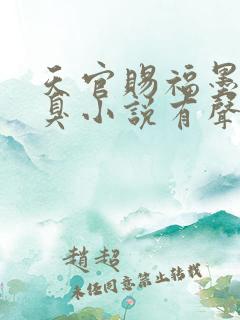 天官賜福墨
臭小说有聲
趙超
未任同意禁止转载